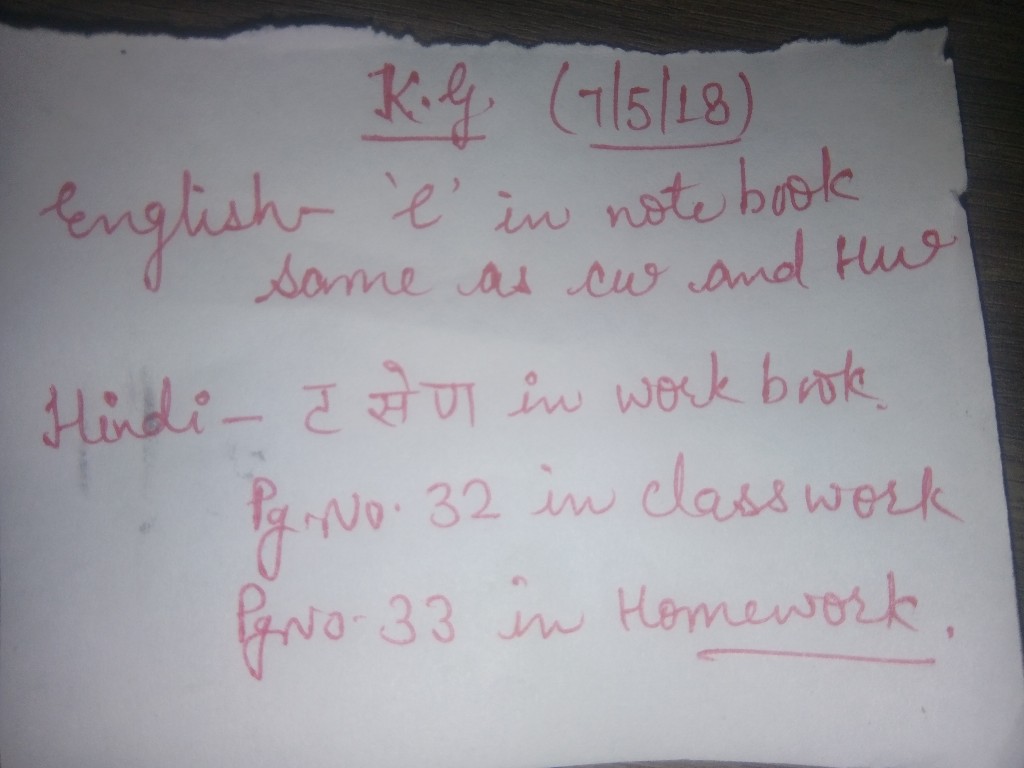 K.G. (7/5/18)
English- 'e' in note book
same as cw and Hw
Hindi - ट से ण in work book.
Pg.No. 32 in classwork
Pg No. 33 in Homework.